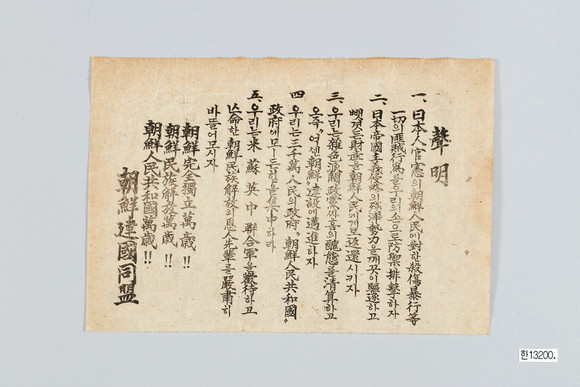 聲明
一、日本人官憲의朝鮮人民에對한殺傷暴行等
一切의匪賊行爲를우리의손으로防禦排擊하자
二、日本帝國主義侵略의殘滓勢力을깨끗이驅逐하고
뺏겻든財産을朝鮮人民에게로返還시키자
三、우리는雜色派閥政黨싸흠의醜態를淸算하고
오즉「여센朝鮮」建設에邁進하자
四 우리는三千萬人民의政府"朝鮮人民共和國"
政府에모ㅡ든힘을集中하라
五、우리는米蘇英中聯合軍을歡待하고
仗命한朝鮮民族解放의恩人先輩를嚴肅히
바뜰어모시자
朝鮮完全獨立萬歲!!
朝鮮民族解放萬歲!!
朝鮮人民共和國萬歲!!
朝鮮建國同盟
한13200.